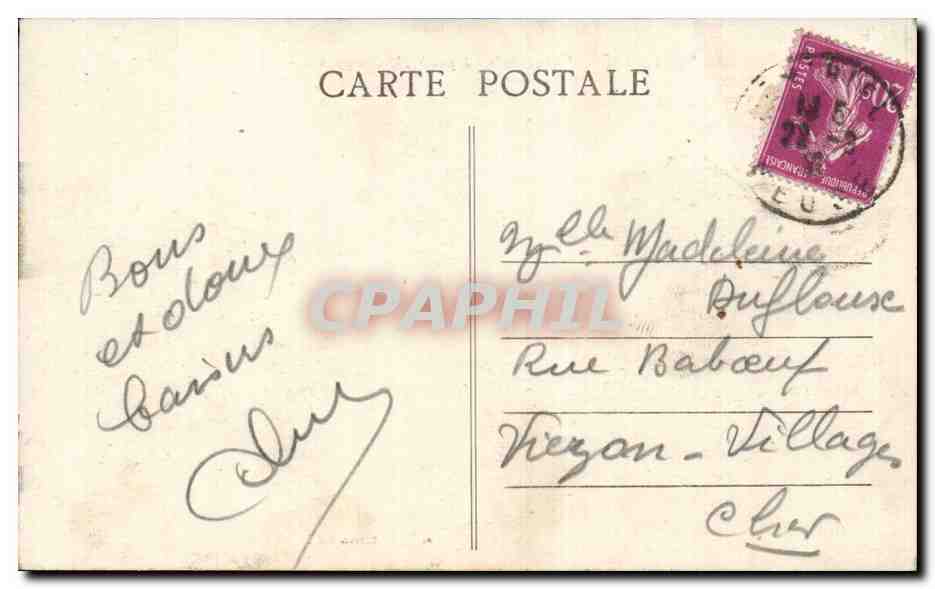 CARTE POSTALE
POSTES
20c
RÉPUBLIQUE FRANÇAISE
Bons
et doux
baisers
CPAPHIL
Mlle Madeleine
Rue Babœuf
Vierzon - Villages
Cher